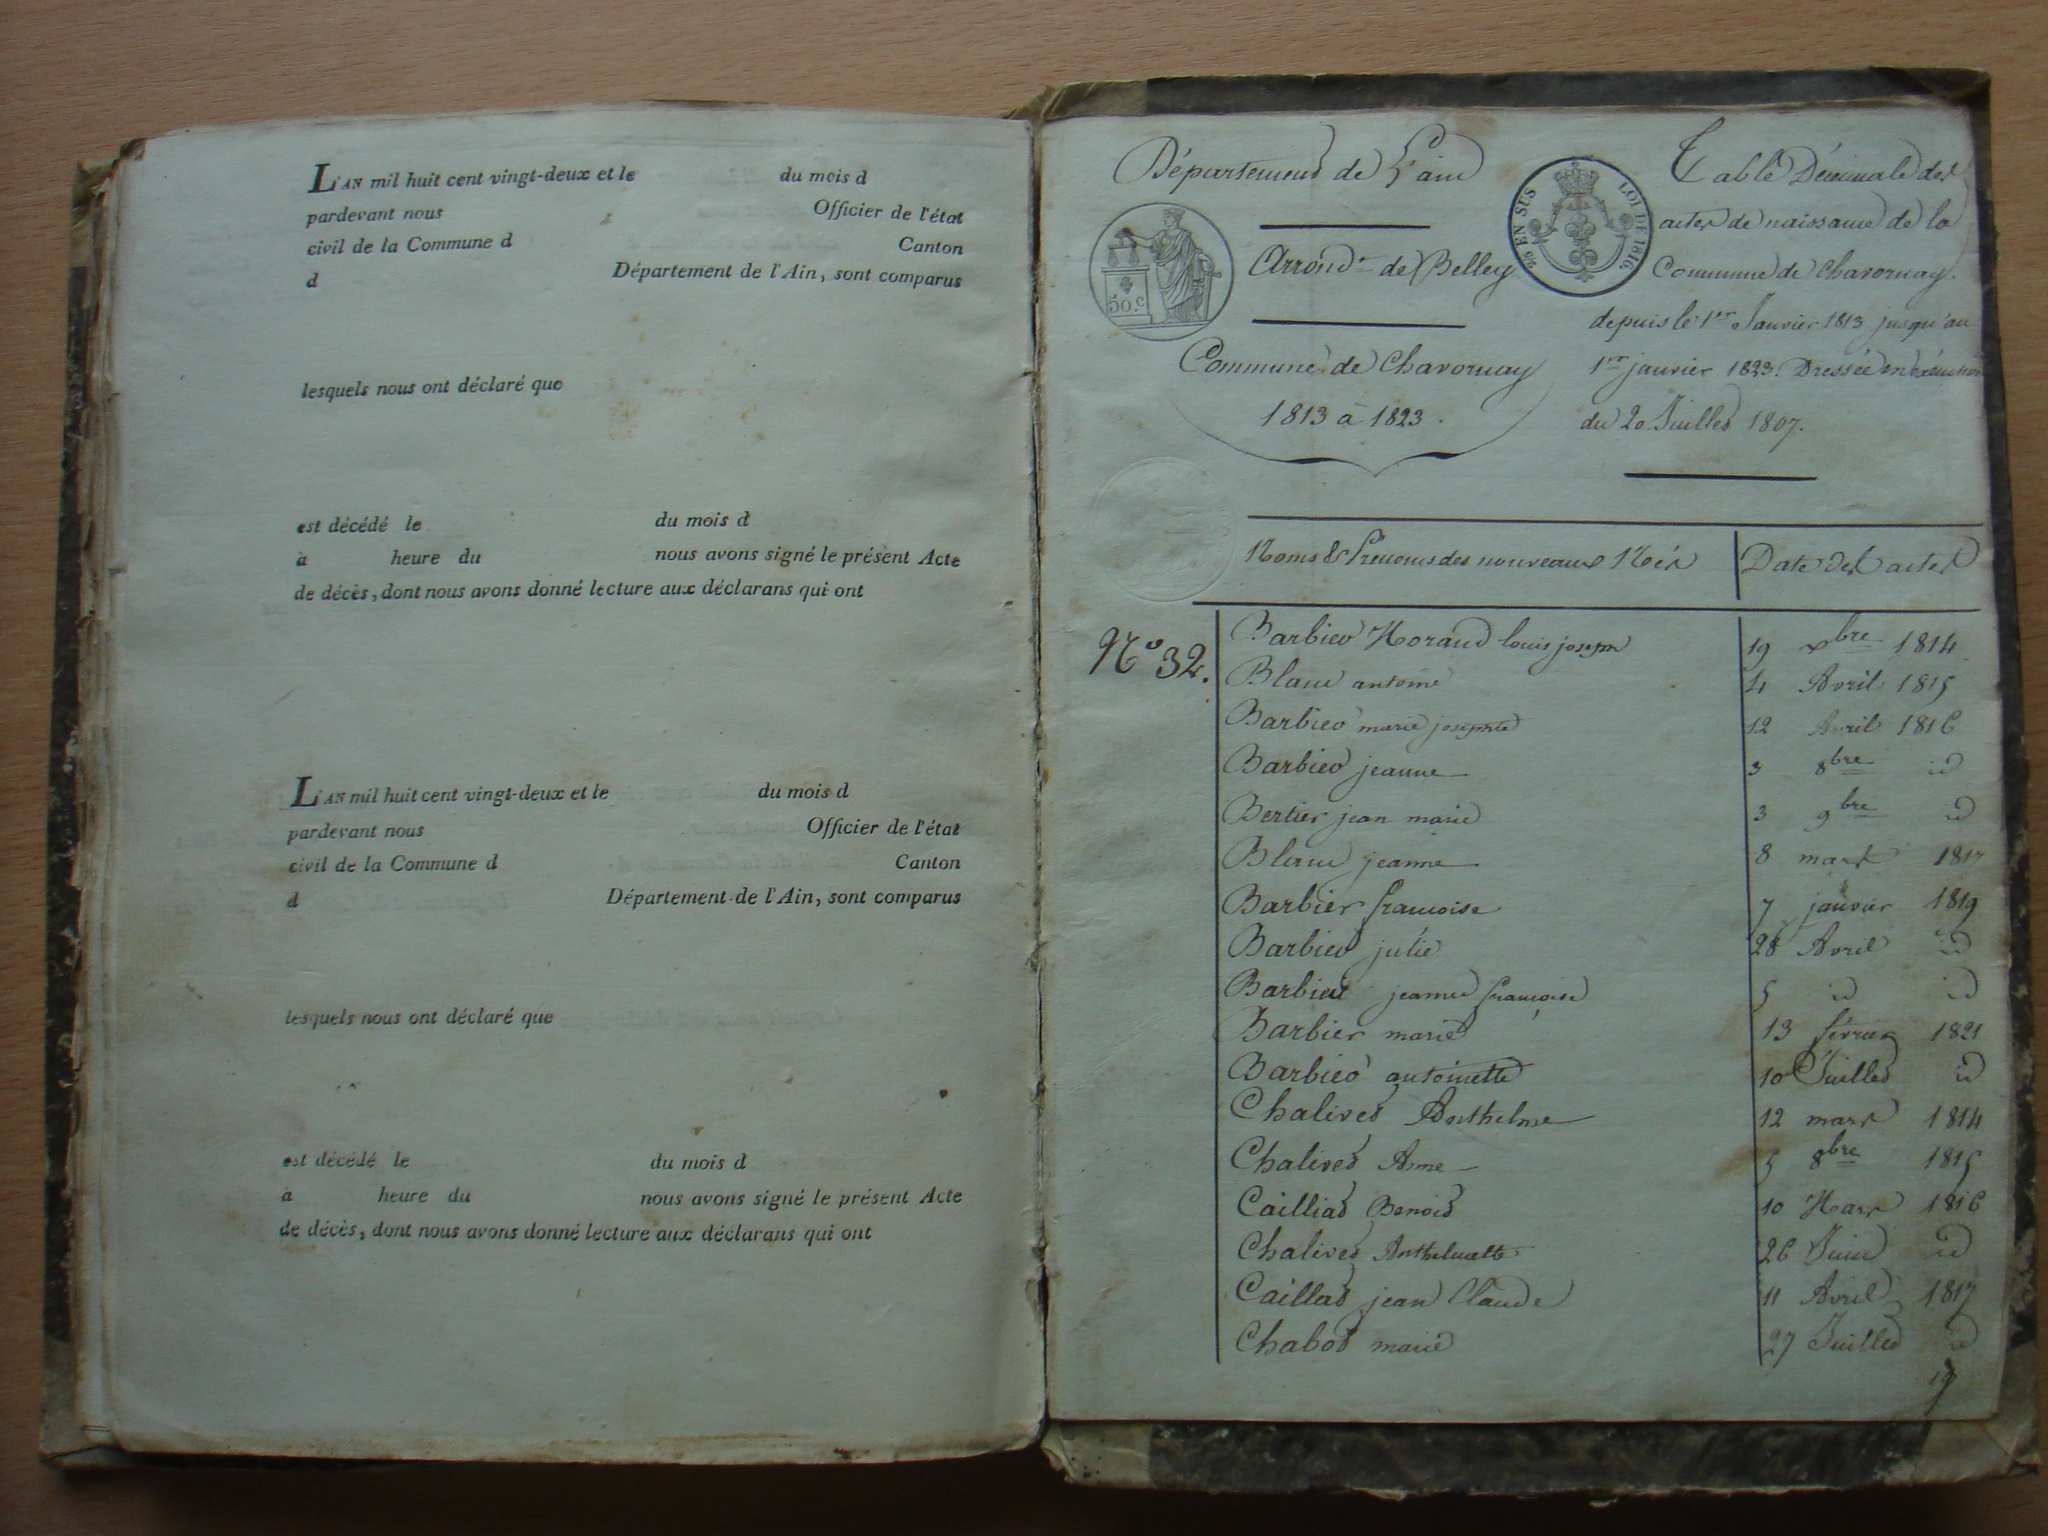 L'AN mil huit cent vingt-deux et le du mois d
pardevant nous Officier de l'état
civil de la Commune d Canton
d Département de l'Ain, sont comparus
lesquels nous ont déclaré que
est décédé le du mois d
à heure du nous avons signé le présent Acte
de décès, dont nous avons donné lecture aux déclarans qui ont
L'AN mil huit cent vingt-deux et le du mois d
pardevant nous Officier de l'état
civil de la Commune d Canton
d Département de l'Ain, sont comparus
lesquels nous ont déclaré que
est décédé le du mois d
à heure du nous avons signé le présent Acte
de décès, dont nous avons donné lecture aux déclarans qui ont
Département de L'ain
50.c
Arrond.t de Belley
Commune de Chavornay
1813 à 1823.
EN SUS LOI DE 1816.
Table Décennale des
actes de naissance de la
Commune de Chavornay.
depuis le 1er Janvier 1813 jusqu'au
1er janvier 1823. Dressée en exécution
du 20 Juillet 1807.
Noms & Prenoms des nouveaux Nés Date des actes
N° 32.
Barbier Morand louis joseph 19 xbre 1814
Blanc antoine 4 Avril 1815
Barbier marie josephte 12 Avril 1816
Barbier jeanne 3 8bre id
Bertier jean marie 3 9bre id
Blanc jeanne 8 mars 1817
Barbier francoise 7 janvier 1819
Barbier julie 28 Avril id
Barbier jeanne françoise 5 id id
Barbier marie 13 février 1821
Barbier antoinette 10 Juillet id
Chalivet Anthelme 12 mars 1814
Chalivet Aime 5 8bre 1815
Cailliat Benoit 10 Mars 1816
Chalivet Anthelmette 26 Juin id
Caillat jean Claude 11 Avril 1817
Chabot marie 27 Juillet id